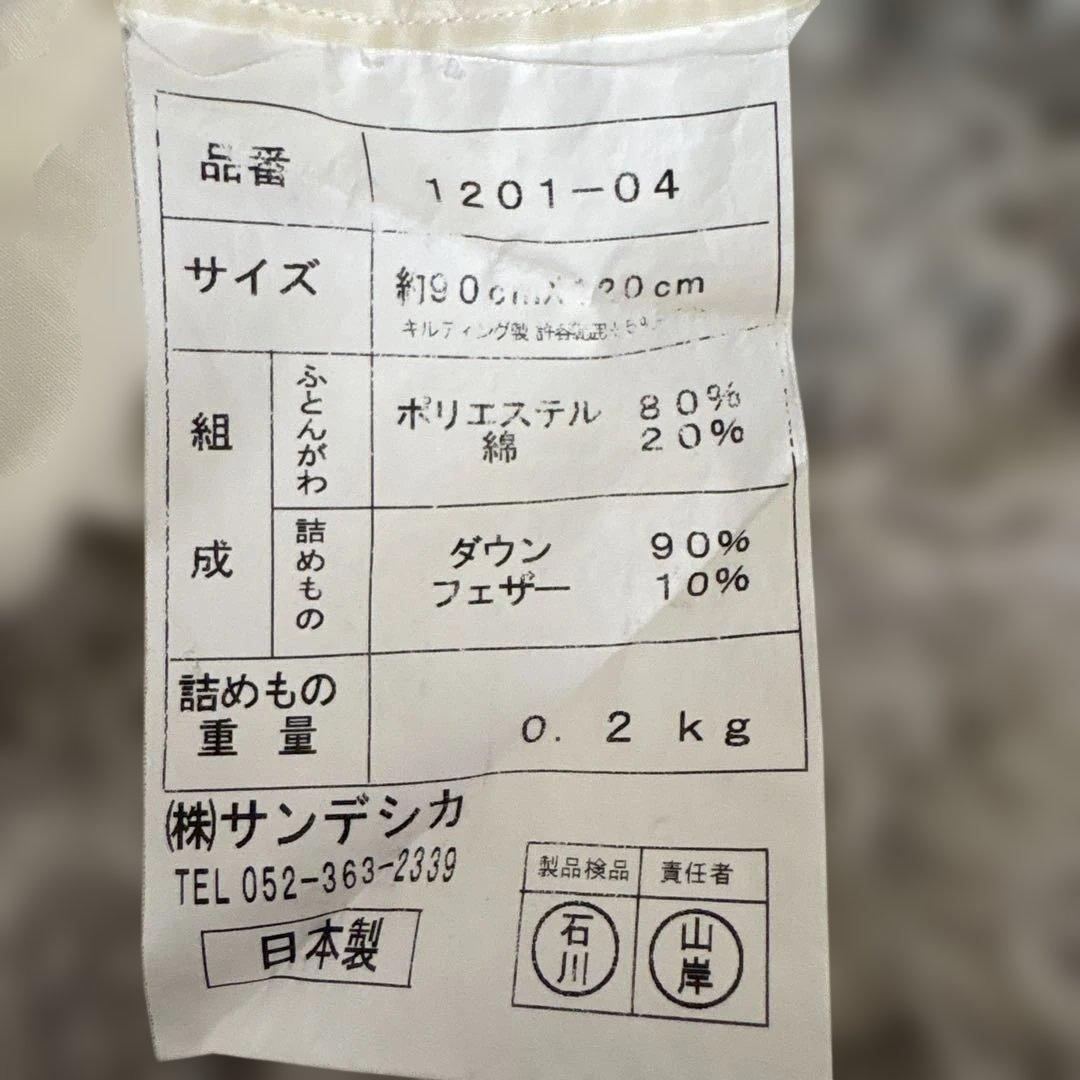 品番 1201-04
サイズ 約90cm 20cm
キルティング製 許容範囲
組成 ふとんがわ ポリエステル 80%
綿 20%
詰めもの ダウン 90%
フェザー 10%
詰めもの重量 0.2kg
㈱サンデシカ
TEL 052-363-2339
日本製
製品検品 責任者
石川 山岸